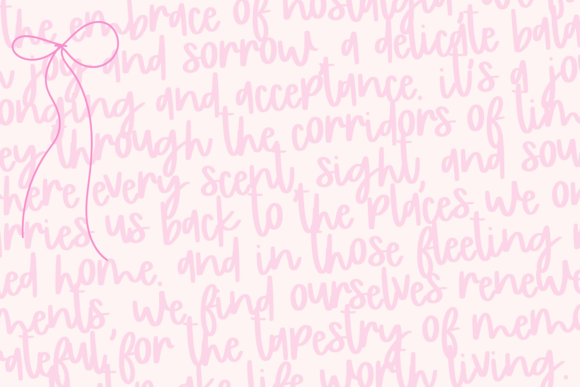 the embrace of nostalgia, we
joy and sorrow, a delicate bala
onging and acceptance. it's a jo
ey through the corridors of tim
here every scent, sight, and sou
rries us back to the places we on
ed home. and in those fleeting
ments, we find ourselves renew
rateful for the tapestry of mem
life worth living.